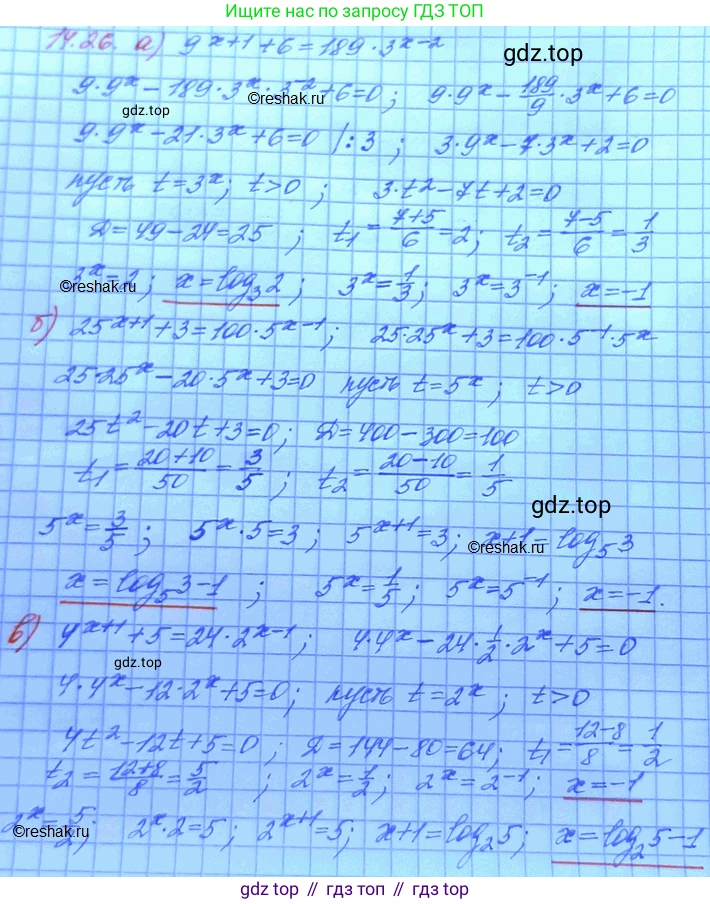 Ищите нас по запросу ГДЗ ТОП
14.26. а) 9^(x+1) + 6 = 189 · 3^(x−2)
gdz.top
9·9^x − 189·3^x · 3^(−2) + 6 = 0; 9·9^x − 189/9 · 3^x + 6 = 0
gdz.top ©reshak.ru
9·9^x − 21·3^x + 6 = 0 |:3 ; 3·9^x − 7·3^x + 2 = 0
пусть t = 3^x; t > 0 ; 3·t² − 7t + 2 = 0
Д = 49 − 24 = 25 ; t₁ = (7+5)/6 = 2; t₂ = (7−5)/6 = 1/3
3^x = 2; x = log₃ 2 ; 3^x = 1/3; 3^x = 3^(−1); x = −1
©reshak.ru
б) 25^(x+1) + 3 = 100 · 5^(x−1); 25·25^x + 3 = 100 · 5^(−1) · 5^x
25·25^x − 20·5^x + 3 = 0 пусть t = 5^x; t > 0
25t² − 20t + 3 = 0; Д = 400 − 300 = 100
t₁ = (20+10)/50 = 3/5; t₂ = (20−10)/50 = 1/5
gdz.top
5^x = 3/5; 5^x · 5 = 3; 5^(x+1) = 3; x+1 = log₅ 3
©reshak.ru
x = log₅ 3 − 1 ; 5^x = 1/5; 5^x = 5^(−1); x = −1.
в) 4^(x+1) + 5 = 24 · 2^(x−1); 4·4^x − 24 · 1/2 · 2^x + 5 = 0
gdz.top
4·4^x − 12·2^x + 5 = 0; пусть t = 2^x; t > 0
4t² − 12t + 5 = 0; Д = 144 − 80 = 64; t₁ = (12−8)/8 = 1/2
t₂ = (12+8)/8 = 5/2 ; 2^x = 1/2; 2^x = 2^(−1); x = −1
2^x = 5/2; 2^x · 2 = 5; 2^(x+1) = 5; x+1 = log₂ 5; x = log₂ 5 − 1
©reshak.ru
gdz.top // гдз топ // gdz.top